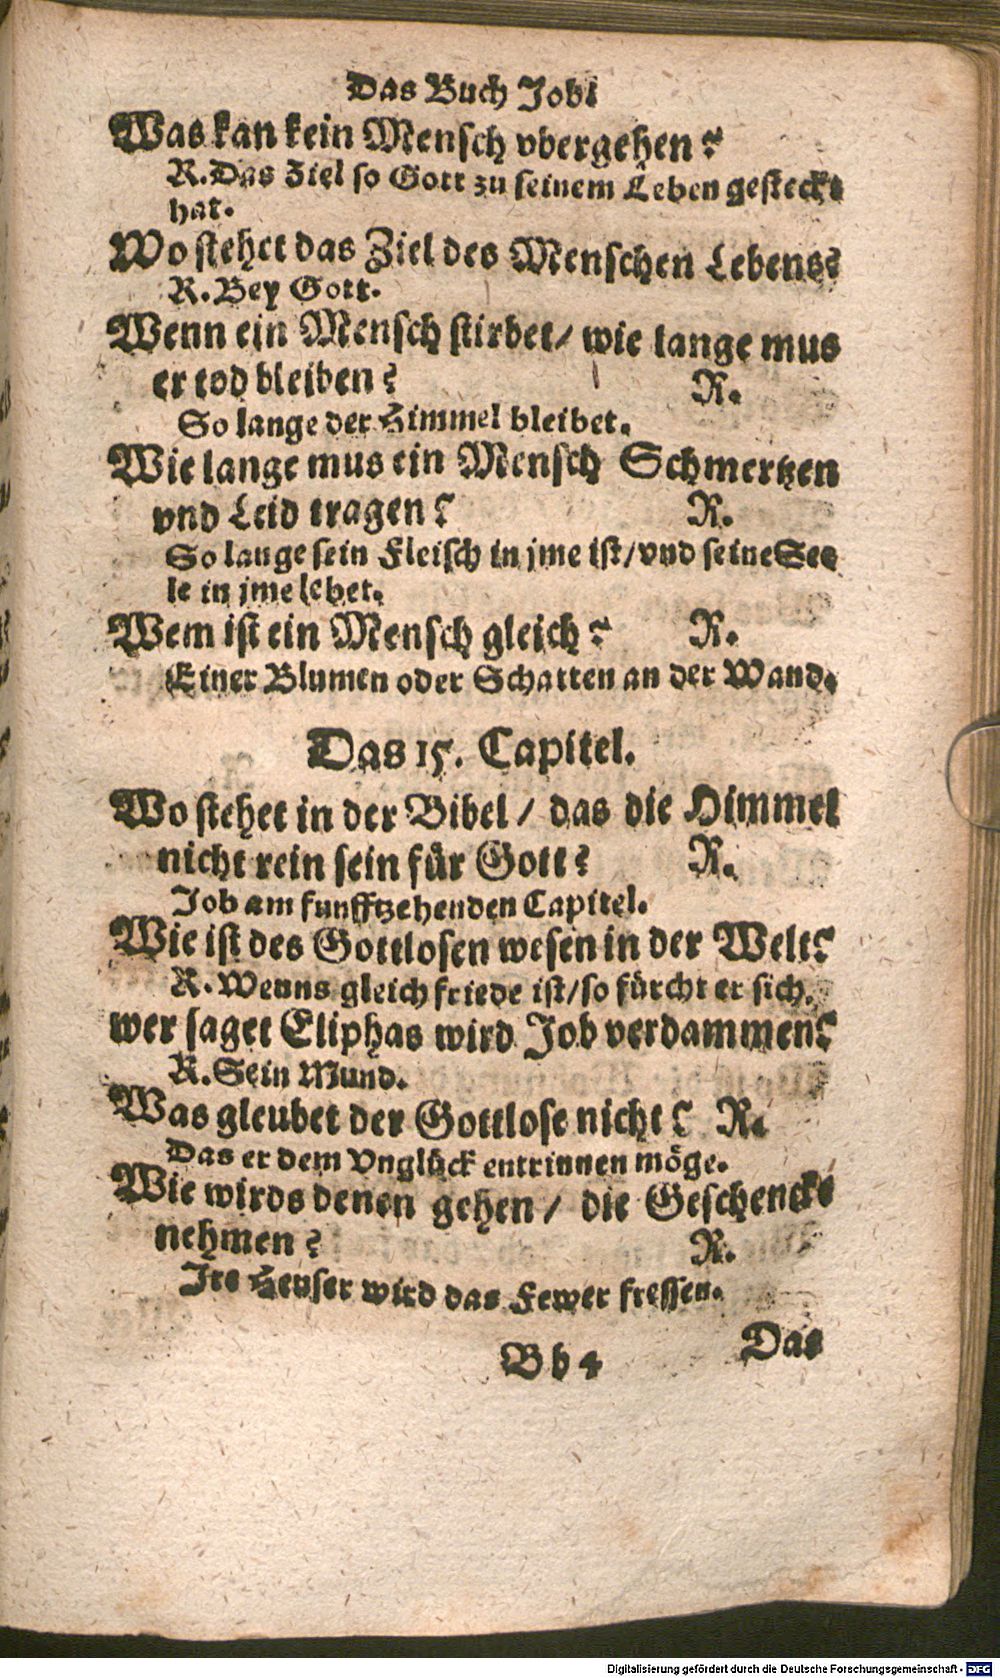 Das Buch Jobi
Was kan kein Mensch vbergehen?
R. Das Ziel so Gott zu seinem Leben gesteckt
hat.
Wo stehet das Ziel des Menschen Lebens?
R. Bey Gott.
Wenn ein Mensch stirbet/ wie lange mus
er tod bleiben? R.
So lange der Himmel bleibet.
Wie lange mus ein Mensch Schmertzen
vnd Leid tragen? R.
So lange sein Fleisch in jme ist/ vnd seine See
le in jme lebet.
Wem ist ein Mensch gleich? R.
Einer Blumen oder Schatten an der Wand.
Das 15. Capitel.
Wo stehet in der Bibel/ das die Himmel
nicht rein sein für Gott? R.
Job am funfftzehenden Capitel.
Wie ist des Gottlosen wesen in der Welt?
R. Wenns gleich friede ist/ so fürcht er sich.
wer saget Eliphas wird Job verdammen?
R. Sein Mund.
Was gleubet der Gottlose nicht? R.
Das er dem Vnglück entrinnen möge.
Wie wirds denen gehen/ die Geschencke
nehmen? R.
Jre Heuser wird das Fewer fressen.
B b 4 Das
Digitalisierung gefördert durch die Deutsche Forschungsgemeinschaft - DFG